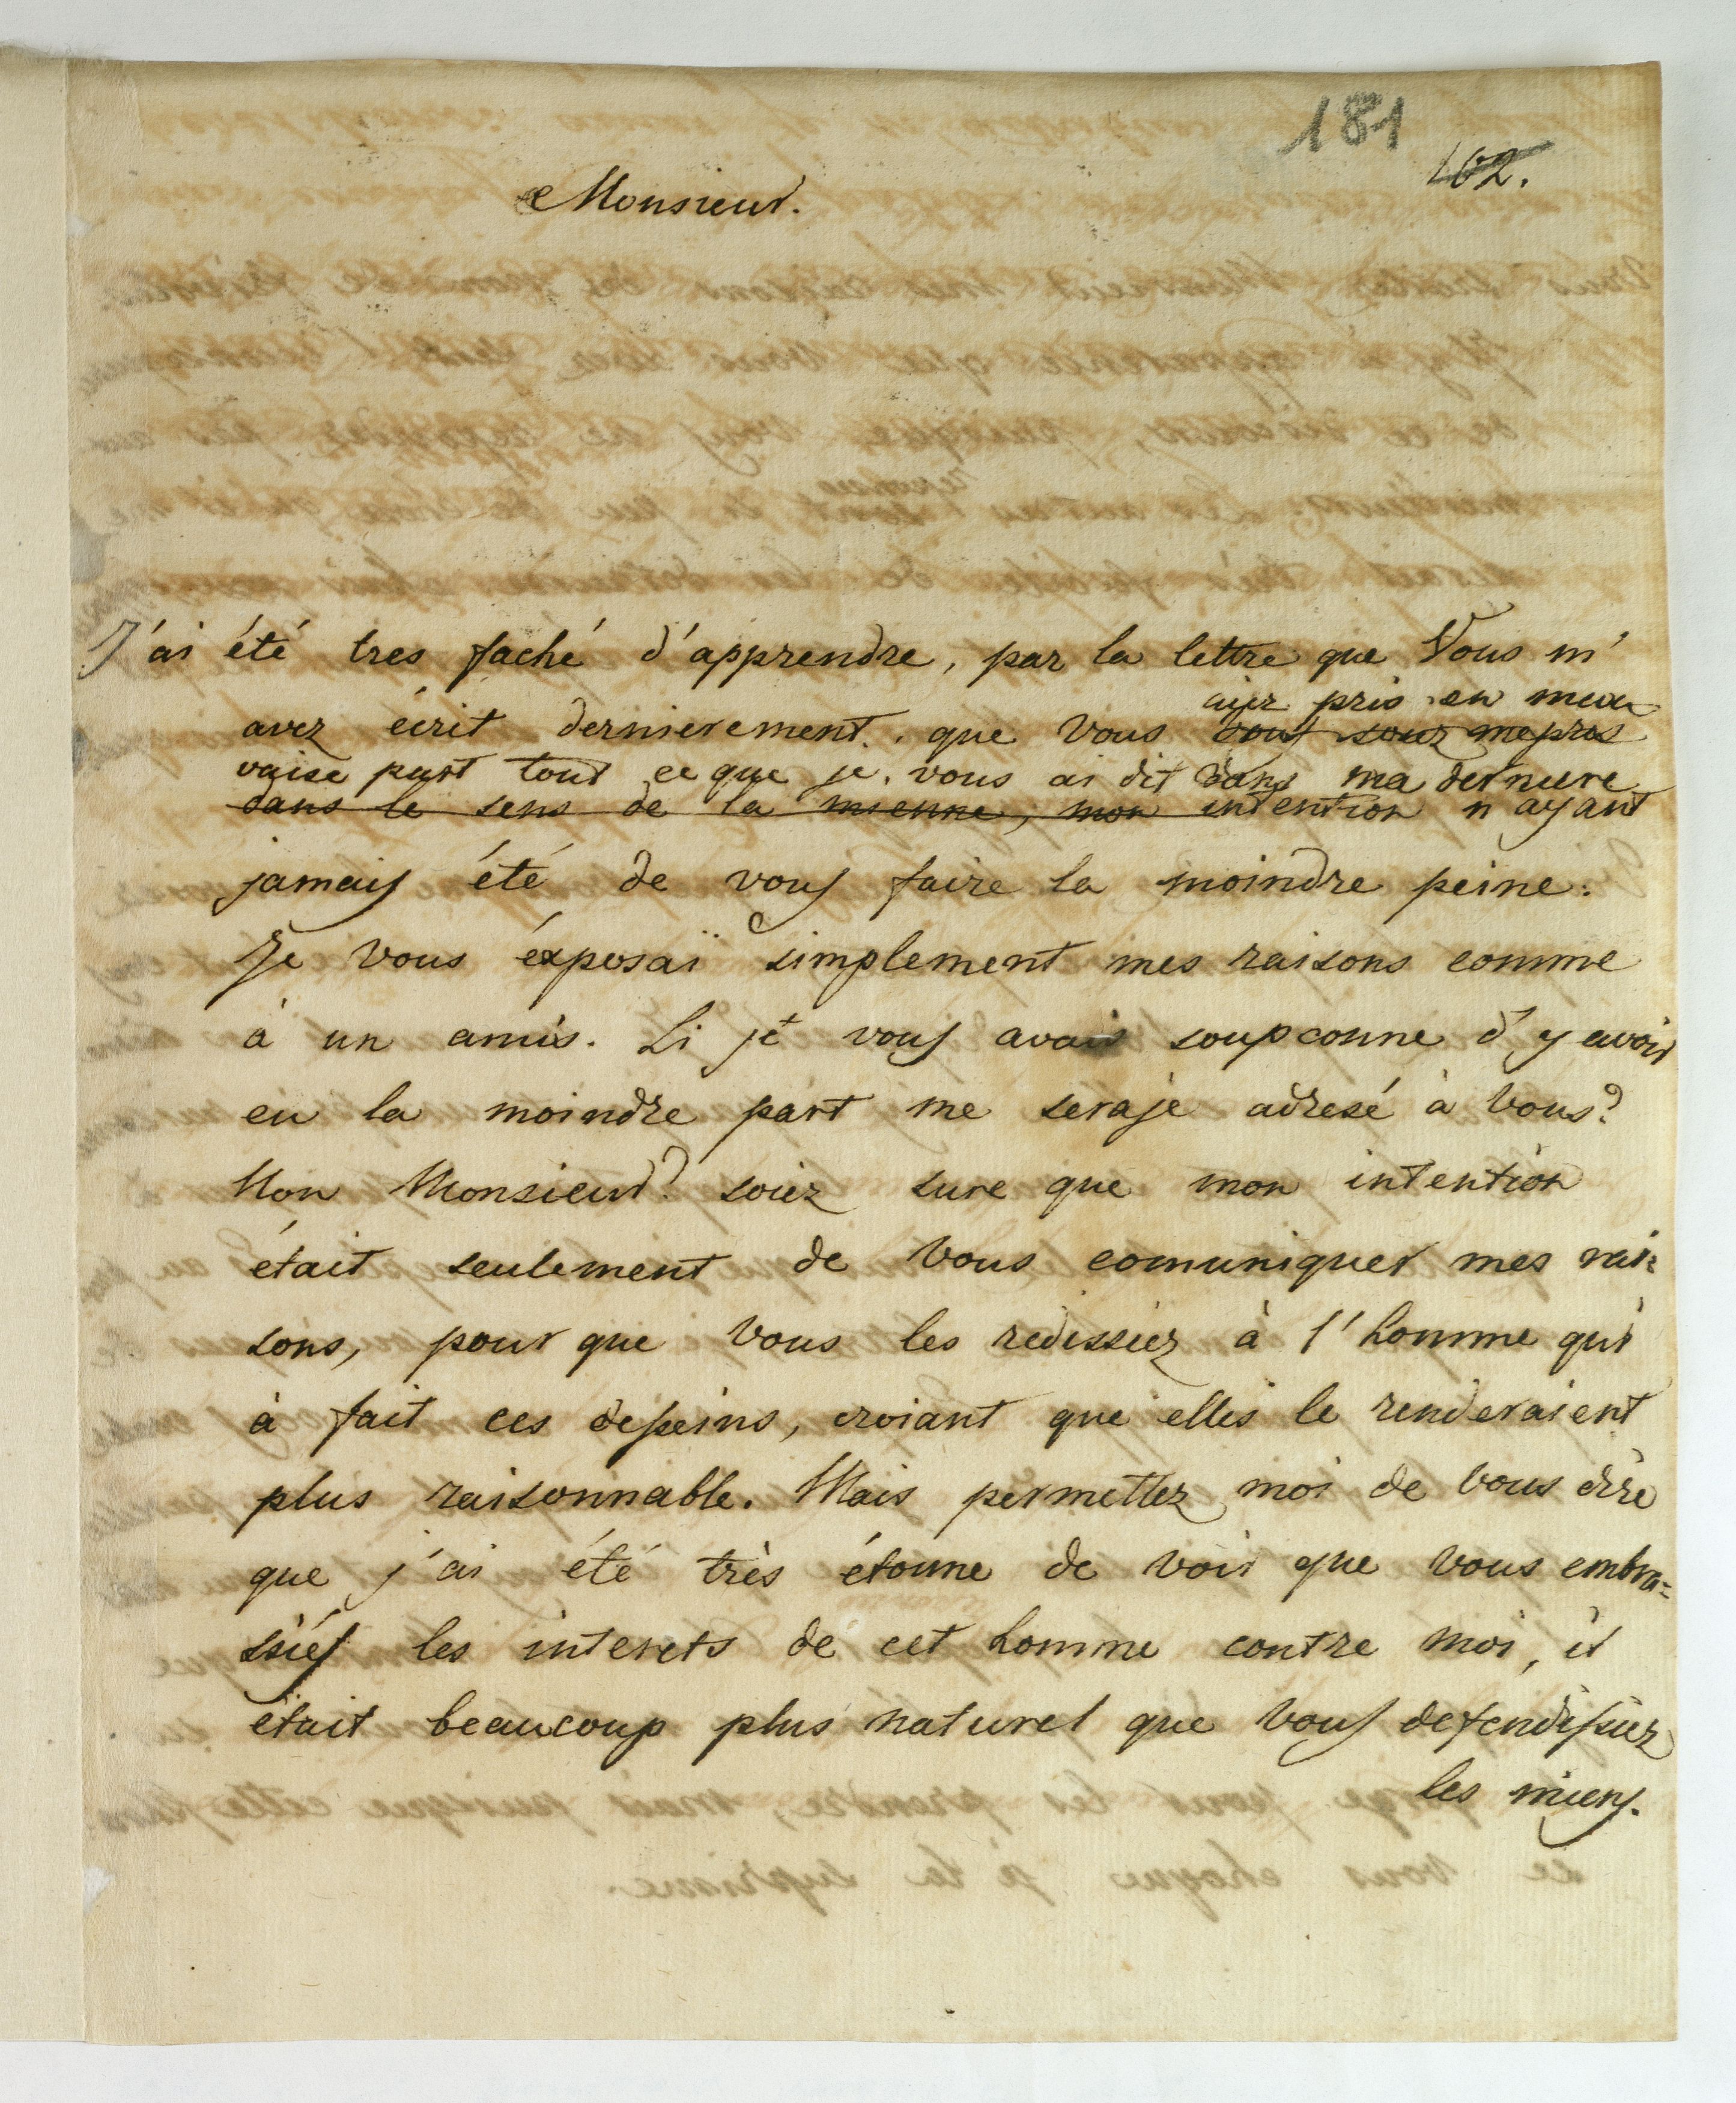 181
102.
Monsieur.
J'ai été tres faché d'apprendre, par la lettre que Vous m'
aijez pris en mau
avez écrit dernierement. que vous vous sour mepros
vaise part tout ce que je vous ai dit dans ma derniere
dans le sens de la mienne, mon intention n ayant
jamais été de vous faire la moindre peine.
Je vous éxposai simplement mes raisons comme
à un amis. Si je vous avais soupconne d'y avoir
eu la moindre part me seraje adresé à Vous?
Non Monsieur? soiez sure que mon intention
était seulement de Vous comuniquer mes rai=
sons, pour que Vous les redissiez à l'homme qui
à fait ces desseins, croiant que elles le renderaient
plus raisonnable. Mais permettez moi de Vous dire
que j'ai été très étonne de voir que vous embra=
ssiés les interets de cet homme contre moi, il
était beaucoup plus naturel que vous defendissiez
les miens.